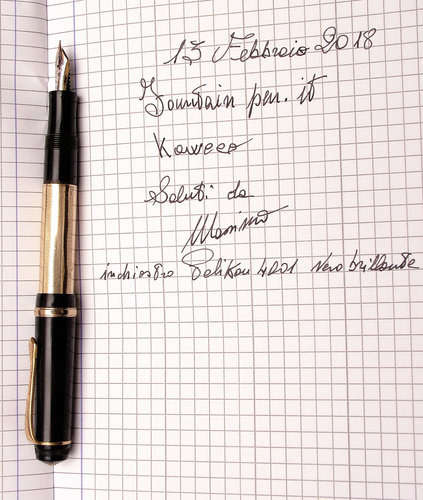 15 Febbraio 2018
Fountain pen. it
Kaweco
Saluti da
Massimo
inchiostro Pelikan 4001 Nero brillante